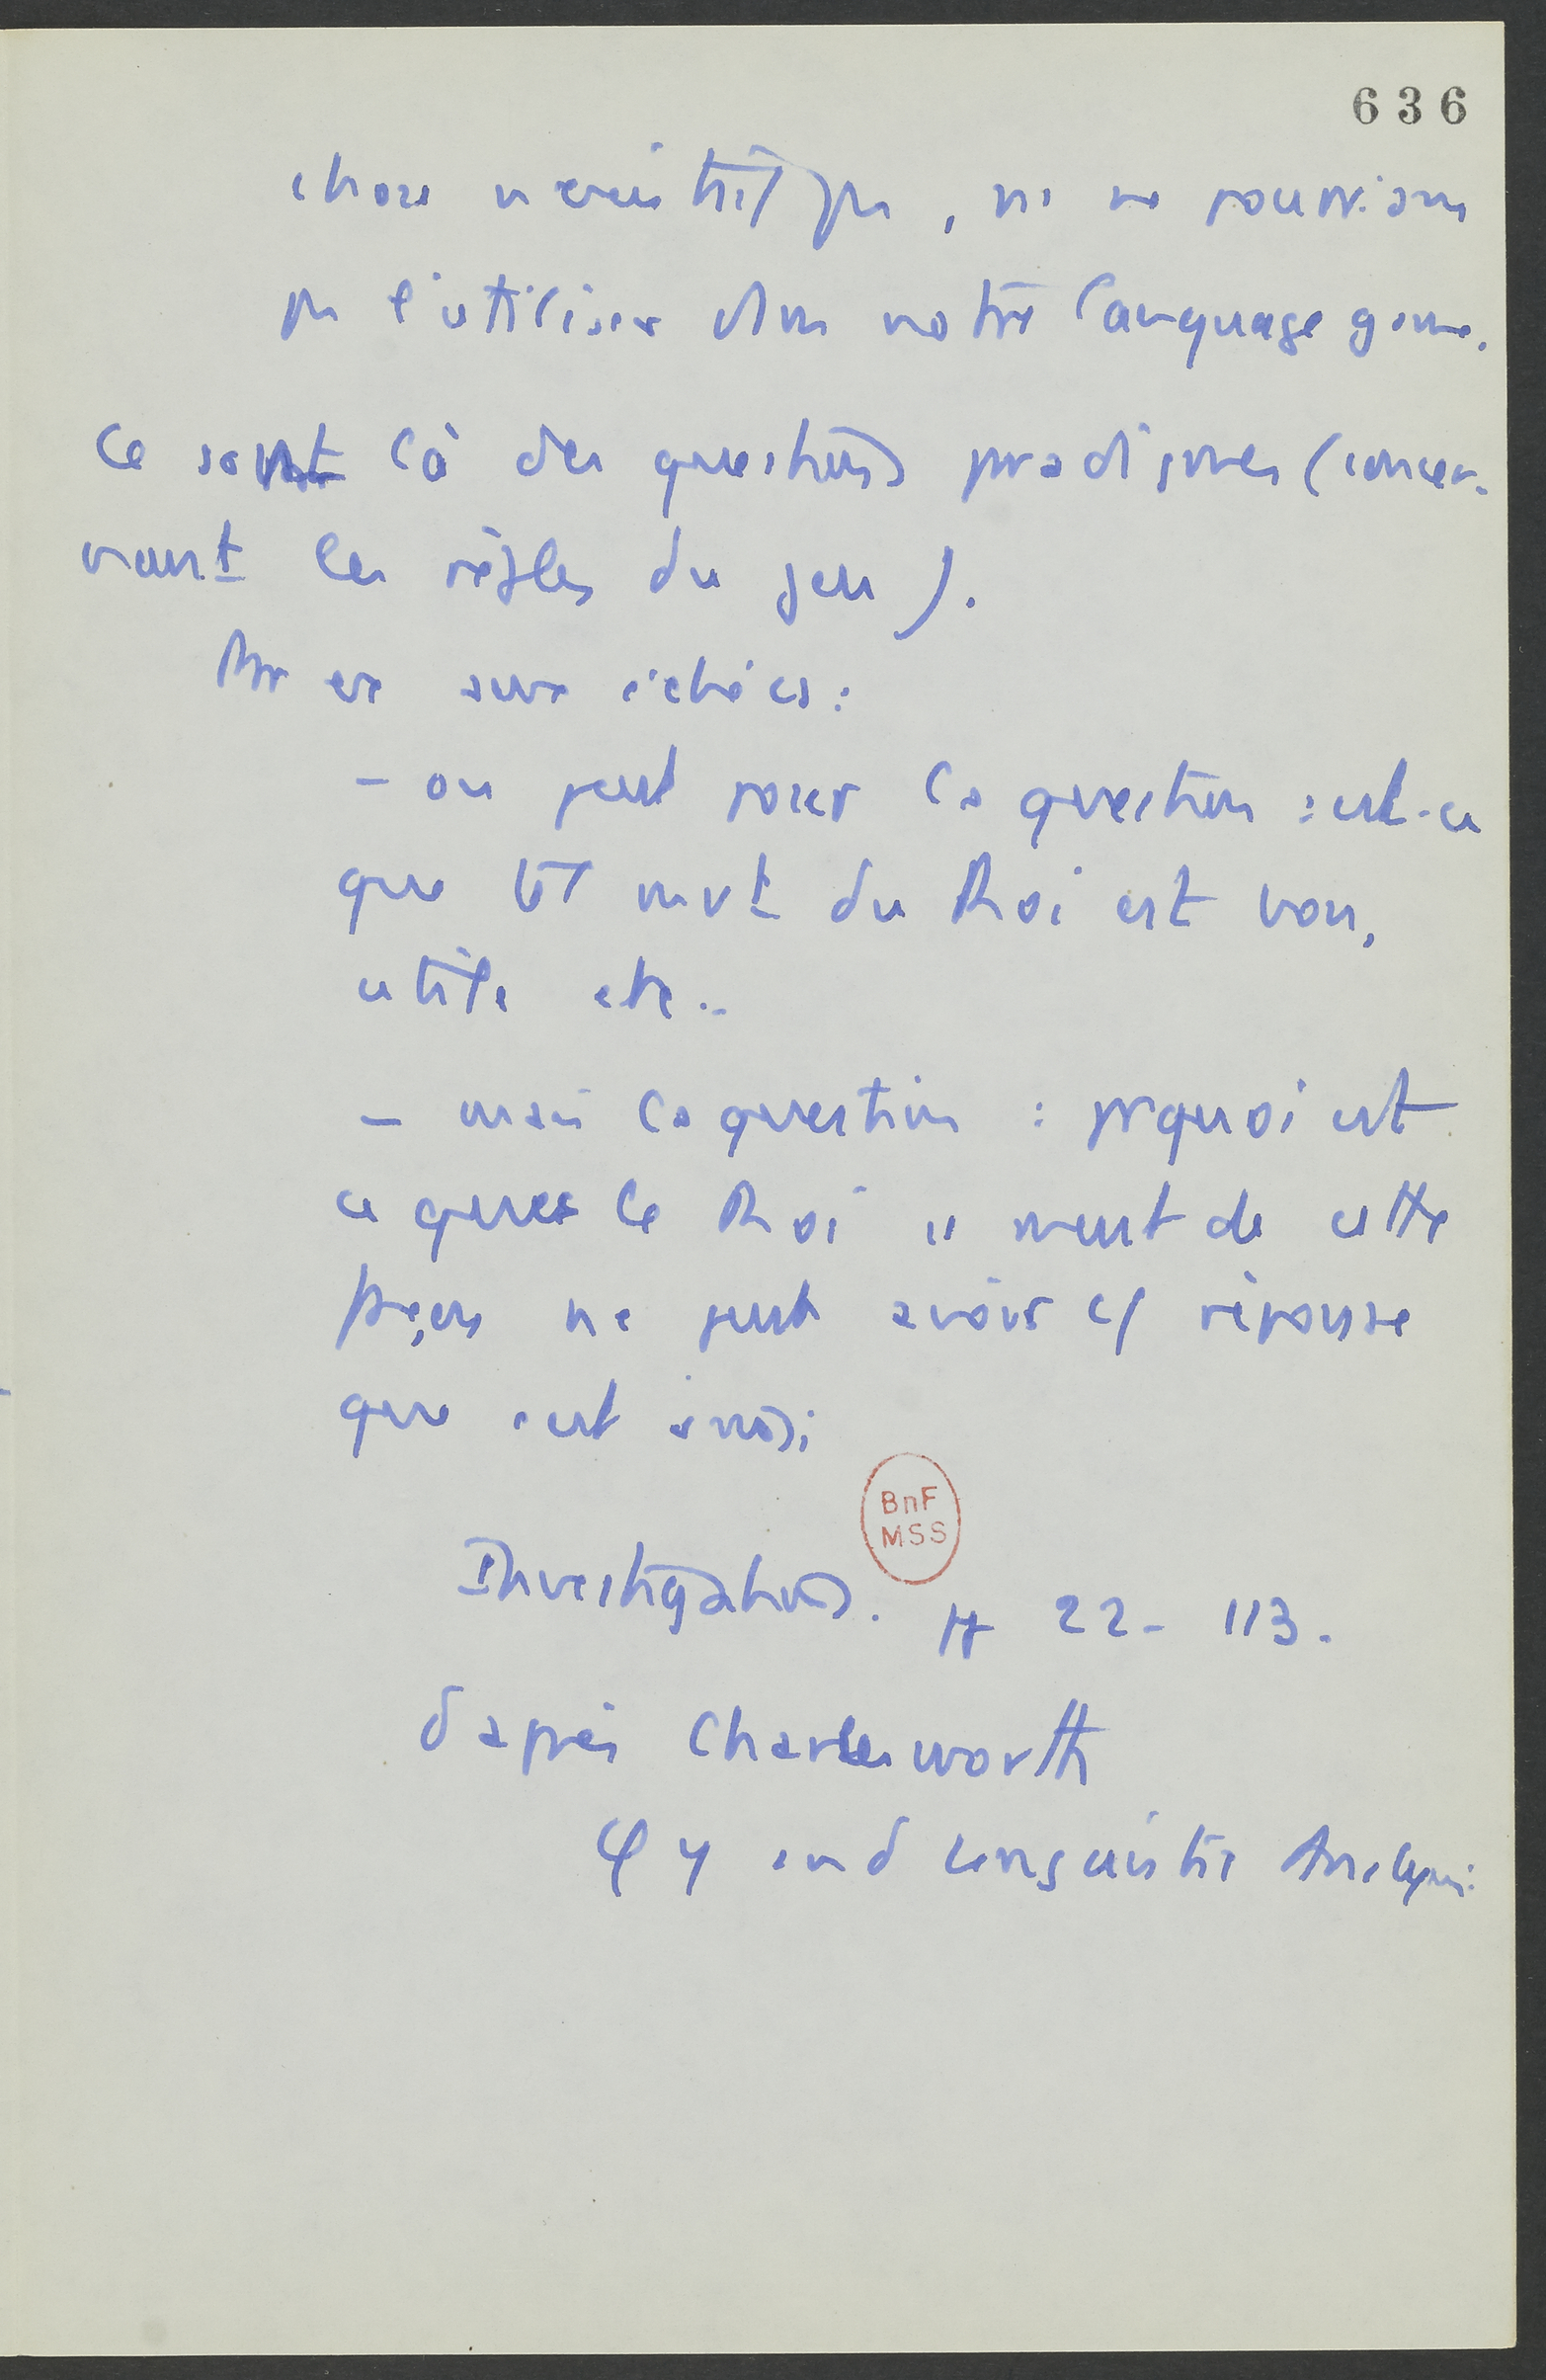 636
chose n'existait pas, ns ne pourrions
pas l'utiliser dans notre language game.
Ce sont là des questions paradigmes (concer-
nant les règles du jeu).
Par ex aux échecs :
- on peut poser la question : est-ce
que tel mvt du Roi est bon,
utile etc..
- mais la question : pquoi est
ce que le Roi se meut de cette
façon ne peut avoir c/ réponse
que c'est ainsi
BnF
MSS
Investigations. pp 22 - 113.
d'après Charlesworth
φy and Linguistic Analysis